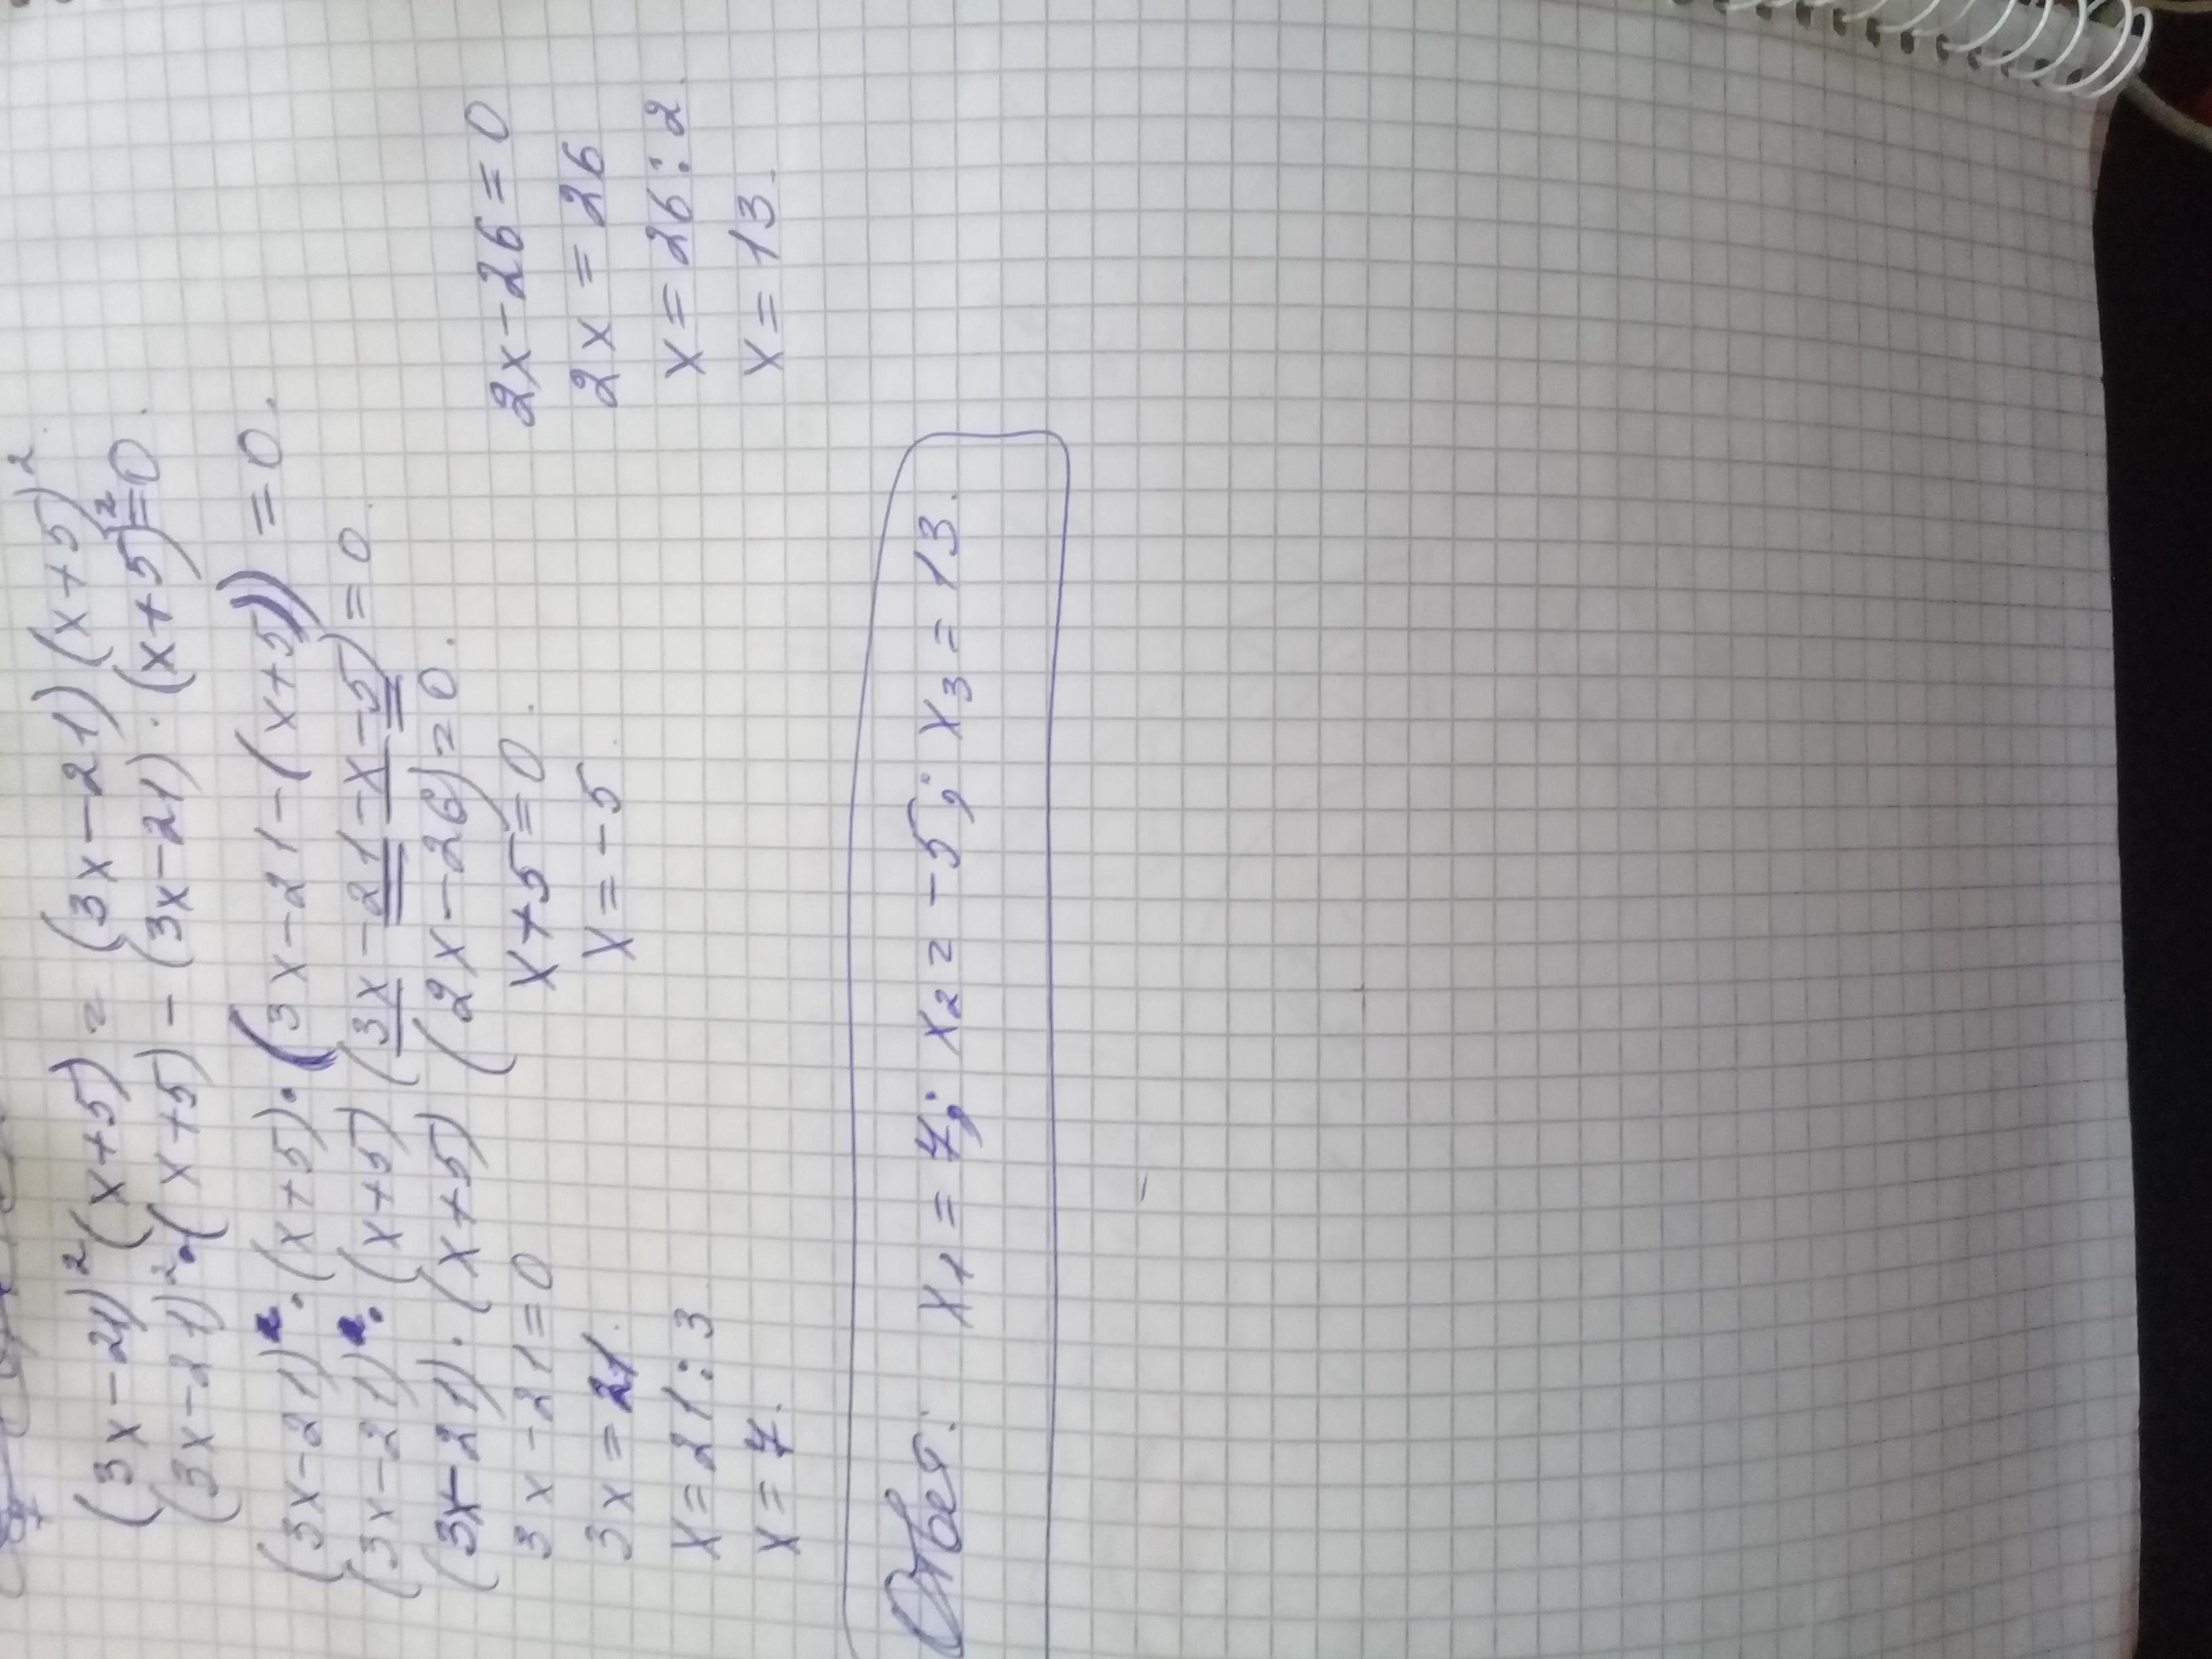 (3x-21)²(x+5) = (3x-21)(x+5)².
(3x-21)²·(x+5) - (3x-21)·(x+5)²=0.
(3x-21)·(x+5)·(3x-21-(x+5)) = 0.
(3x-21)·(x+5)(3x-21-x-5) = 0.
(3x-21)·(x+5) (2x-26)=0.
3x-21=0 x+5=0. 2x-26=0
3x=21. x=-5. 2x=26
x=21:3 x=26:2.
x=7. x=13.
Ответ: x₁ = 7; x₂ = -5; x₃ = 13.